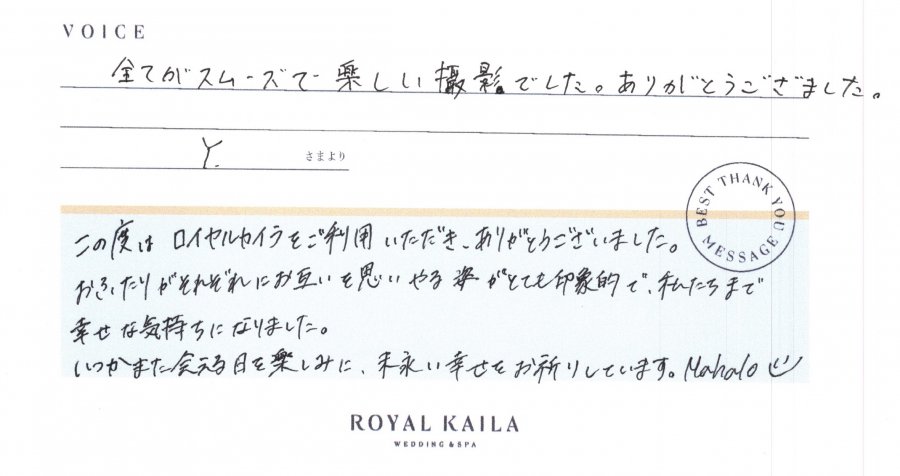 VOICE
全てがスムーズで楽しい撮影でした。ありがとうございました。
Y. さまより
BEST THANK YOU MESSAGE
この度はロイヤルカイラをご利用いただき、ありがとうございました。
おふたりがそれぞれにお互いを思いやる姿がとても印象的で、私たちまで
幸せな気持ちになりました。
いつかまた会える日を楽しみに、末永い幸せをお祈りしています。Mahalo
ROYAL KAILA
WEDDING & SPA